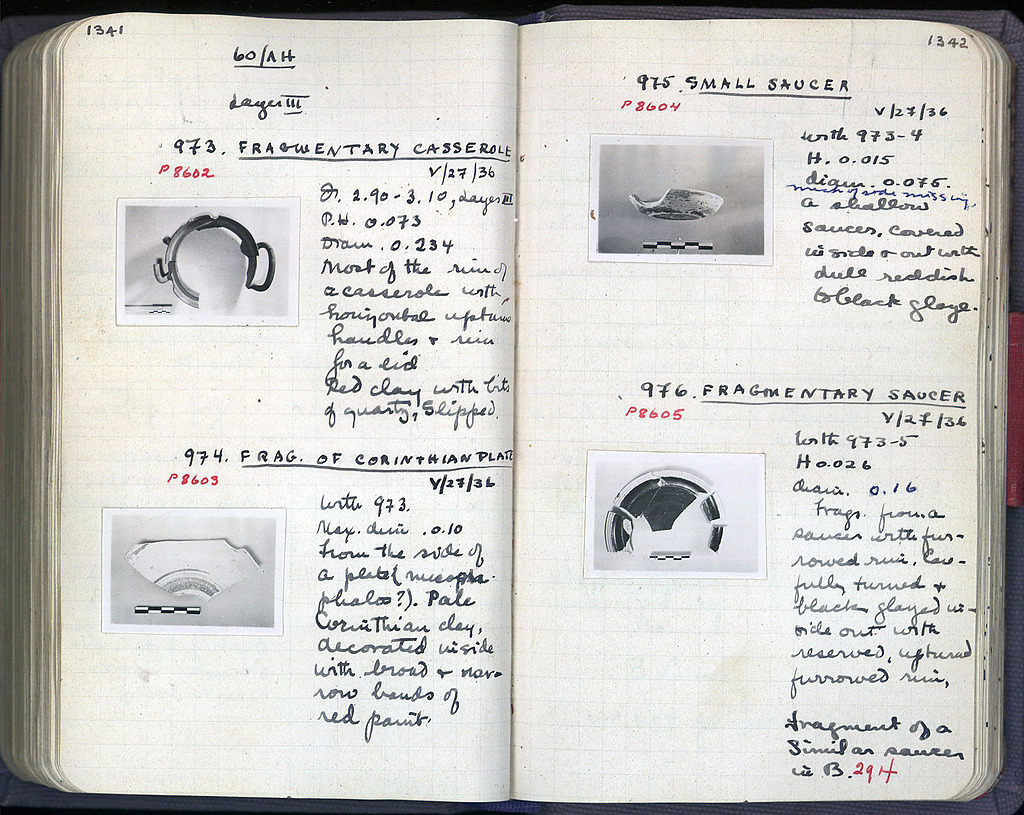 1341
60/ΛH
Layer III
973. FRAGMENTARY CASSEROLE
P8602
V/27/36
2.90-3.10, Layer III
P.H. 0.073
Diam. 0.234
Most of the rim of
a casserole with
horizontal upturn
handles & rim
for a lid
Red clay with bits
of quartz, Slipped.
974. FRAG. OF CORINTHIAN PLATE
P8603
V/27/36
With 973.
Max. dim. 0.10
From the side of
a plate (mesom-
phalos?). Pale
Corinthian clay,
decorated inside
with broad & nar-
row bands of
red paint.
1342
975. SMALL SAUCER
P8604
V/27/36
With 973-4
H. 0.015
diam. 0.075.
much of side missing.
a shallow
saucer, covered
inside & out with
dull reddish
to black glaze.
976. FRAGMENTARY SAUCER
P8605
V/27/36
With 973-5
H 0.026
diam. 0.16
Frags. from a
saucer with fur-
rowed rim. Care-
fully turned &
black glazed in-
side out with
reserved, upturned
furrowed rim,
Fragment of a
Similar saucer
in B. 294